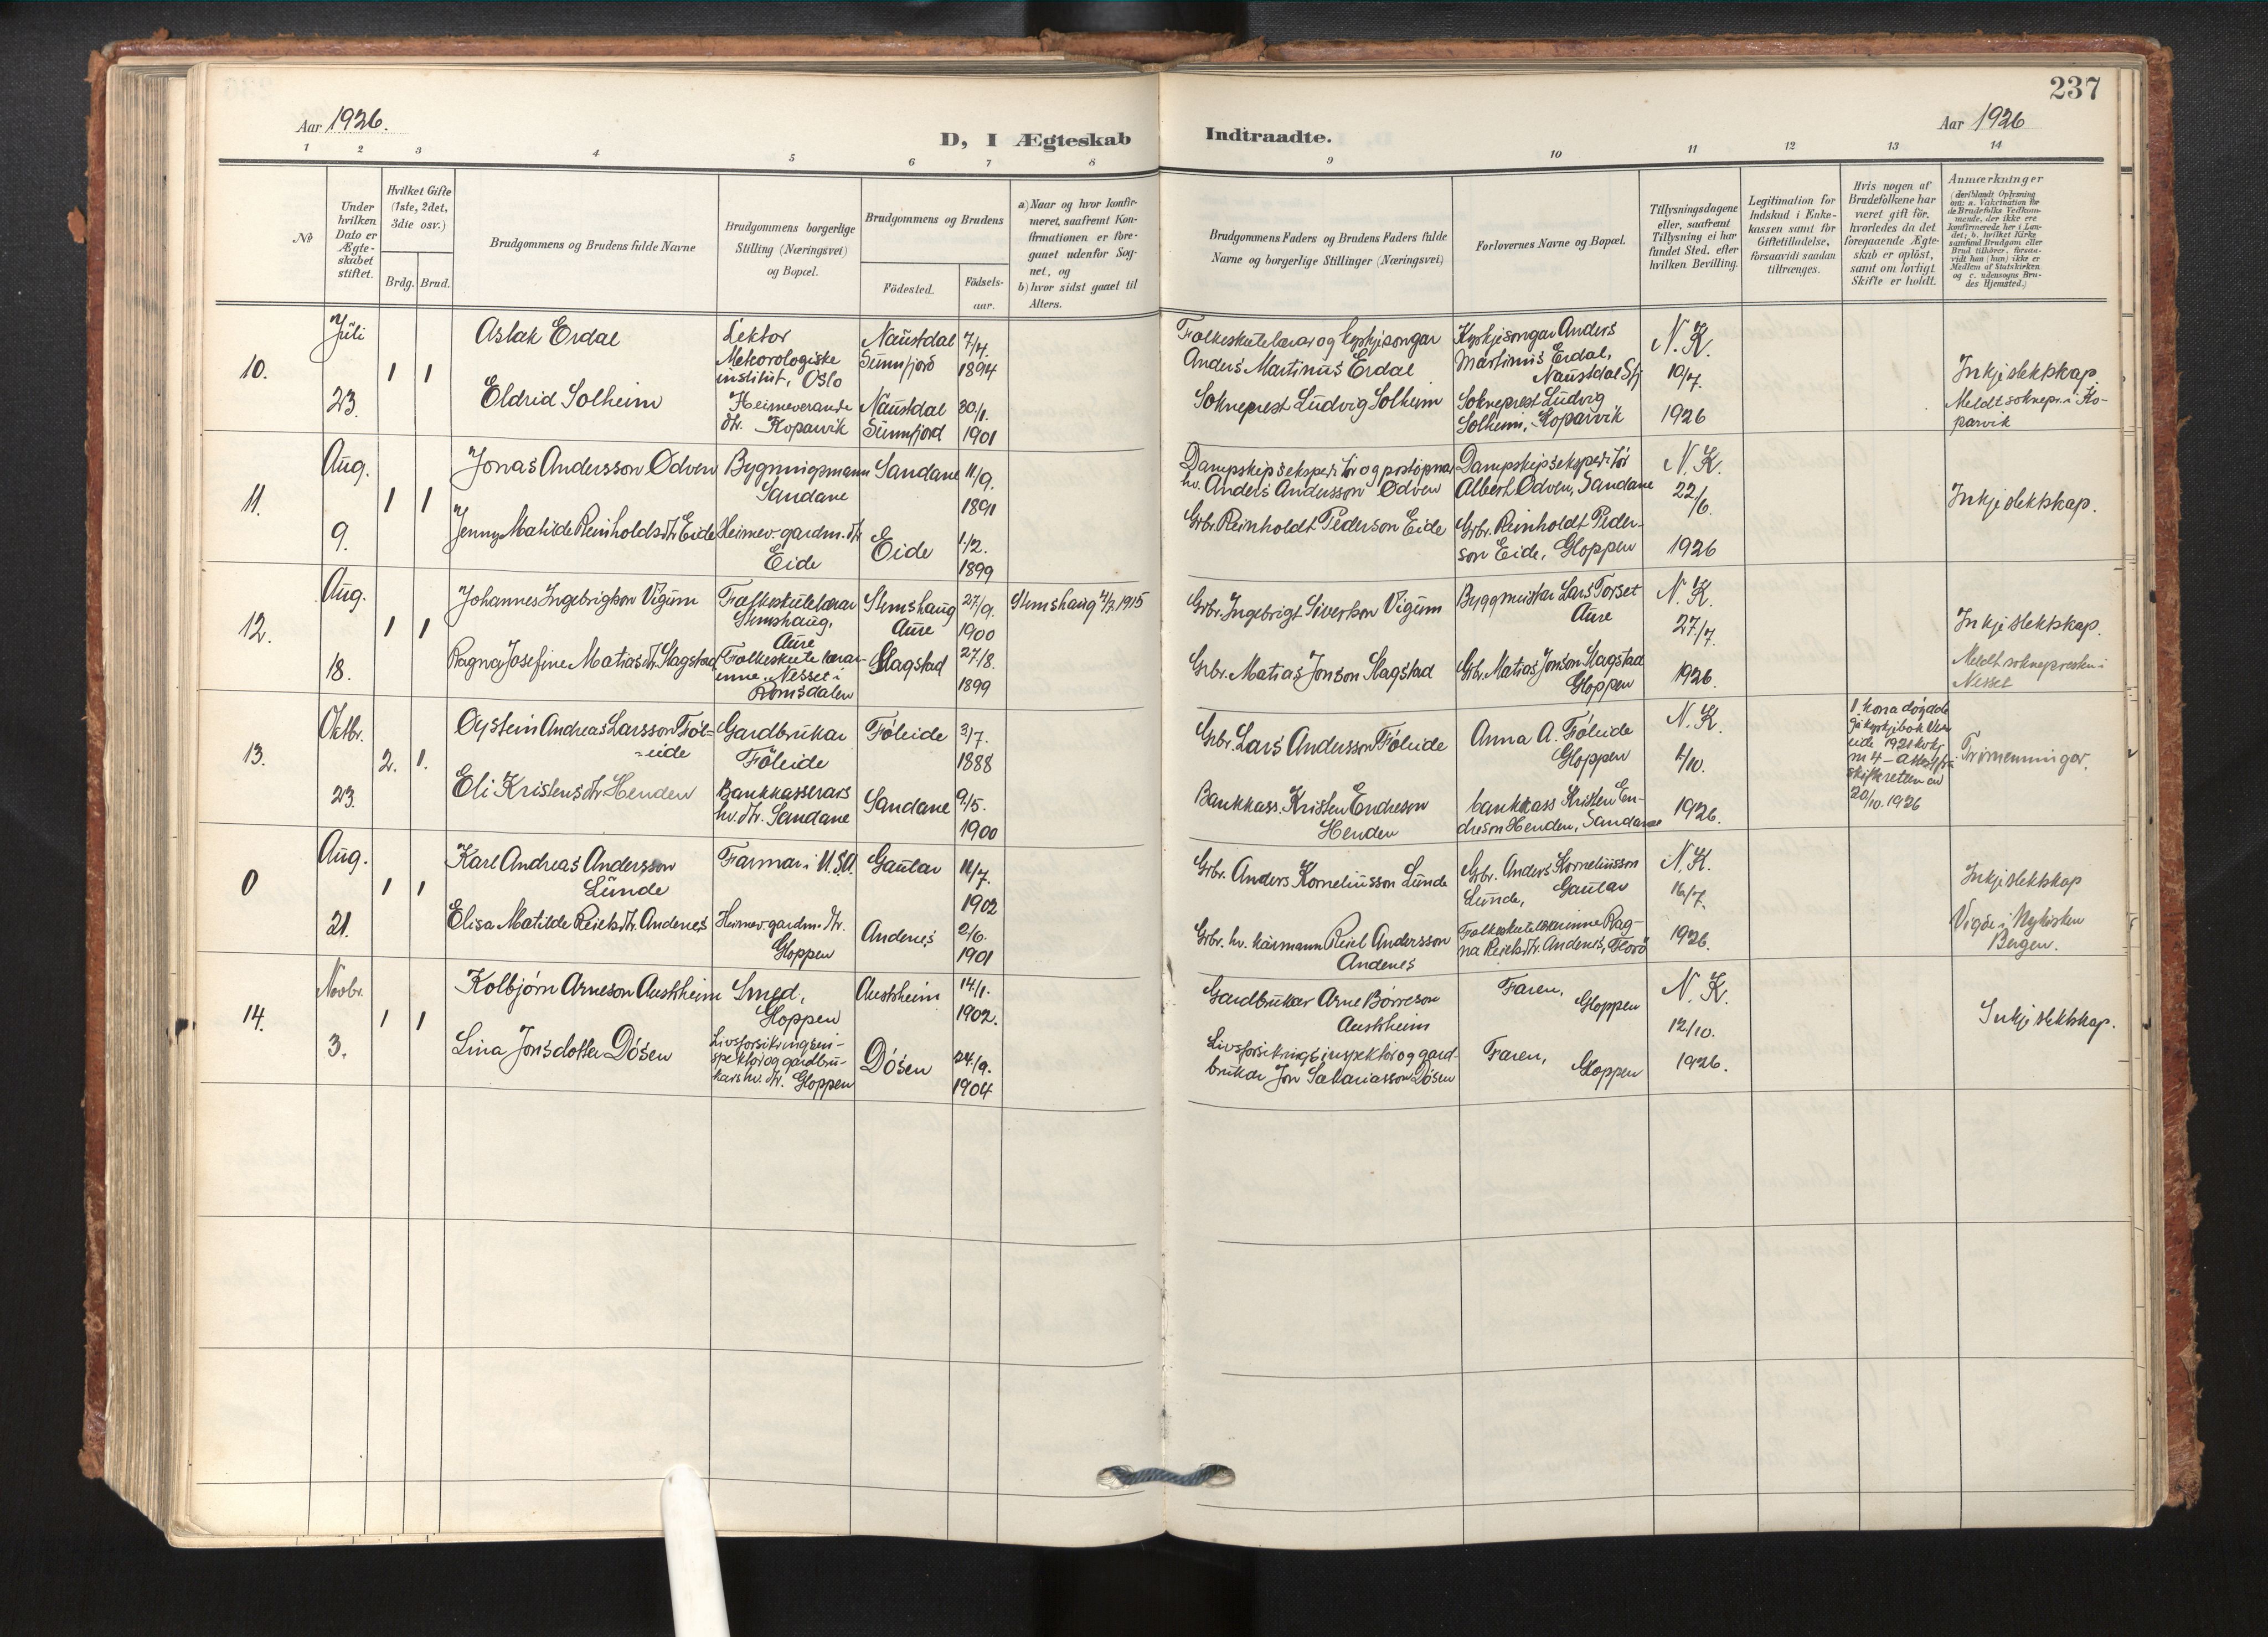 237
Aar 1926.
Aar 1926
D, I Ægteskab Indtraadte.
1 2 3 4 5 6 7 8 9 10 11 12 13 14
No
Under hvilken Dato er Ægte-skabet stiftet.
Hvilket Gifte (1ste, 2det, 3die osv.)
Brdg. Brud.
Brudgommens og Brudens fulde Navne
Brudgommens borgerlige Stilling (Næringsvei) og Bopæl.
Brudgommens og Brudens
Födested.
Födsels-aar.
a) Naar og hvor konfir-meret, saafremt Kon-firmationen er fore-gaaet udenfor Sog-net, og
b) hvor sidst gaaet til Alters.
Brudgommens Faders og Brudens Faders fulde Navne og borgerlige Stillinger (Næringsvei)
Forlovernes Navne og Bopæl.
Tillysningsdagene eller, saafremt Tillysning ei har fundet Sted, efter hvilken Bevilling.
Legitimation for Indskud i Enke-kassen samt for Giftetilladelse, forsaavidt saadan tiltrænges.
Hvis nogen af Brudefolkene har været gift för, hvorledes da det foregaaende Ægte-skab er oplöst, samt om lovligt Skifte er holdt.
Anmærkninger
(deriblandt Oplysning om: a. Vakcination for de Brudefolks Vedkom-mende, der ikke ere konfirmerede her i Lan-det; b. hvilket Kirke-samfund Brudgom eller Brud tilhörer, forsaa-vidt han (hun) ikke er Medlem af Statskirken, og c. udensogns Bru-des Hjemsted.)
10.
Juli
23.
1 1
Aslak Erdal
Lektor
Meteorologiske
institut, Oslo
Naustdal
Sunnfjord
7/4.
1894
Folkeskulelærar og kyrkjesongar
Anders Martinus Erdal
Kyrkjesongar Anders
Martinus Erdal,
Naustdal Sfj
N. K.
10/7.
1926
Inkje slektskap.
Meldt soknepr. i Ko-
parvik
Eldrid Solheim
Heimeverande
dtr. Koparvik
Naustdal
Sunnfjord
30/1.
1901
Sokneprest Ludvig Solheim
Sokneprest Ludvig
Solheim, Koparvik
11.
Aug.
9.
1 1
Jonas Andersson Ødven
Bygningsmann
Sandane
Sandane
11/9.
1891
Dampskipsekspeditør og postopnar
hv. Anders Andersson Ødven
Dampskipsekspeditør
Albert Ødven, Sandane
N. K.
22/6.
1926
Inkje slektskap.
Jenny Matilde Reinholdsdtr Eide
Heimev. gardm. dtr
Eide
Eide
1/2.
1899
Grbr. Reinholdt Pederson Eide
Grbr. Reinholdt Peder-
son Eide, Gloppen
12.
Aug.
18.
1 1
Johannes Ingebrigtson Vigum
Folkeskulelærar
Stemshaug,
Aure
Stemshaug
Aure
27/9.
1900
Stemshaug 4/7 1915
Grbr. Ingebrigt Siverson Vigum
Byggmeister Lars Torset
Aure
N. K.
27/7.
1926.
Inkje slektskap.
Meldt soknepresten i
Nesset
Ragna Josefine Matiasdtr. Slagstad
Folkeskulelærar-
inne, Nesset i
Romsdalen
Slagstad
27/8.
1899
Grbr. Matias Jonson Slagstad
Grbr. Matias Jonson Slagstad
Gloppen
13.
Oktbr.
23.
2. 1.
Oystein Andreas Larsson Føl-
-eide
Gardbrukar
Føleide
Føleide
2/7.
1888
Grbr. Lars Andersson Føleide
Anna A. Føleide
Gloppen
N. K.
2/10.
1926.
1. kona døydde
20/10. 1926
Trimenningar.
Eli Kristensdtr Henden
Bankkasserars
hv. dtr. Sandane
Sandane
9/5.
1900
Bankkass. Kristen Endreson
Henden
bankkass Kristen En-
dreson Henden, Sandane
0
Aug.
21.
1 1
Karl Andreas Andersson
Lunde
Farmar i U.S.A.
Gaular
11/7.
1902
Grbr. Anders Korneliusson Lunde
Grbr. Anders Korneliusson
Lunde, Gaular
N. K.
16/7.
1926.
Inkje slektskap
Vigde i Nykirken
Bergen.
Elisa Matilde Reielsdtr. Andenes
Heimev. gardm. dtr.
Gloppen
Andenes
2/6.
1901
Grbr. hv. kårmann Reiel Andersson
Andenes
Folkeskulelærarinne Rag-
na Reielsdtr. Andenes, Florø
14.
Novbr.
3.
1 1
Kolbjørn Arneson Austrheim
Smed,
Gloppen
Austrheim
14/1.
1902.
Gardbrukar Arne Børreson
Austrheim
Faren,
Gloppen
N. K.
12/10.
1926.
Inkje slektskap.
Lina Jonsdotter Døsen
Livsforsikringsin-
spektør og gardbru-
kars hv. dtr. Gloppen
Døsen
24/9.
1904
Livsforsikringsinspektør og gard-
brukar Jon Sakariasson Døsen
Faren,
Gloppen